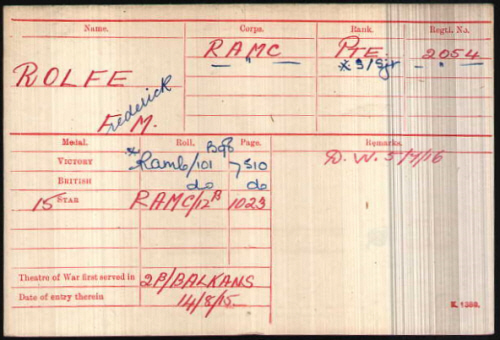 Name. Corps. Rank. Regtl. No.
ROLFE RAMC PTE 2054
Frederick * S/Sjt "
F M.
Medal. Roll. Page. Remarks.
VICTORY * Ramc/101 B98 7510 D. W. 5/7/16
BRITISH do do
15 STAR RAMC/12B 1023
Theatre of War first served in 2B/BALKANS
Date of entry therein 14/8/15.
K. 1380.